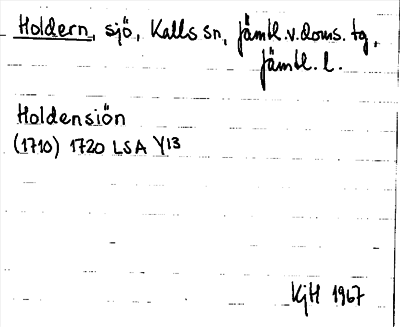 Holdern, sjö, Kalls sn, Jämtl.v.doms. tg,
Jämtl. l.
Holdensiön
(1710) 1720 LSA Y13
KjH 1967